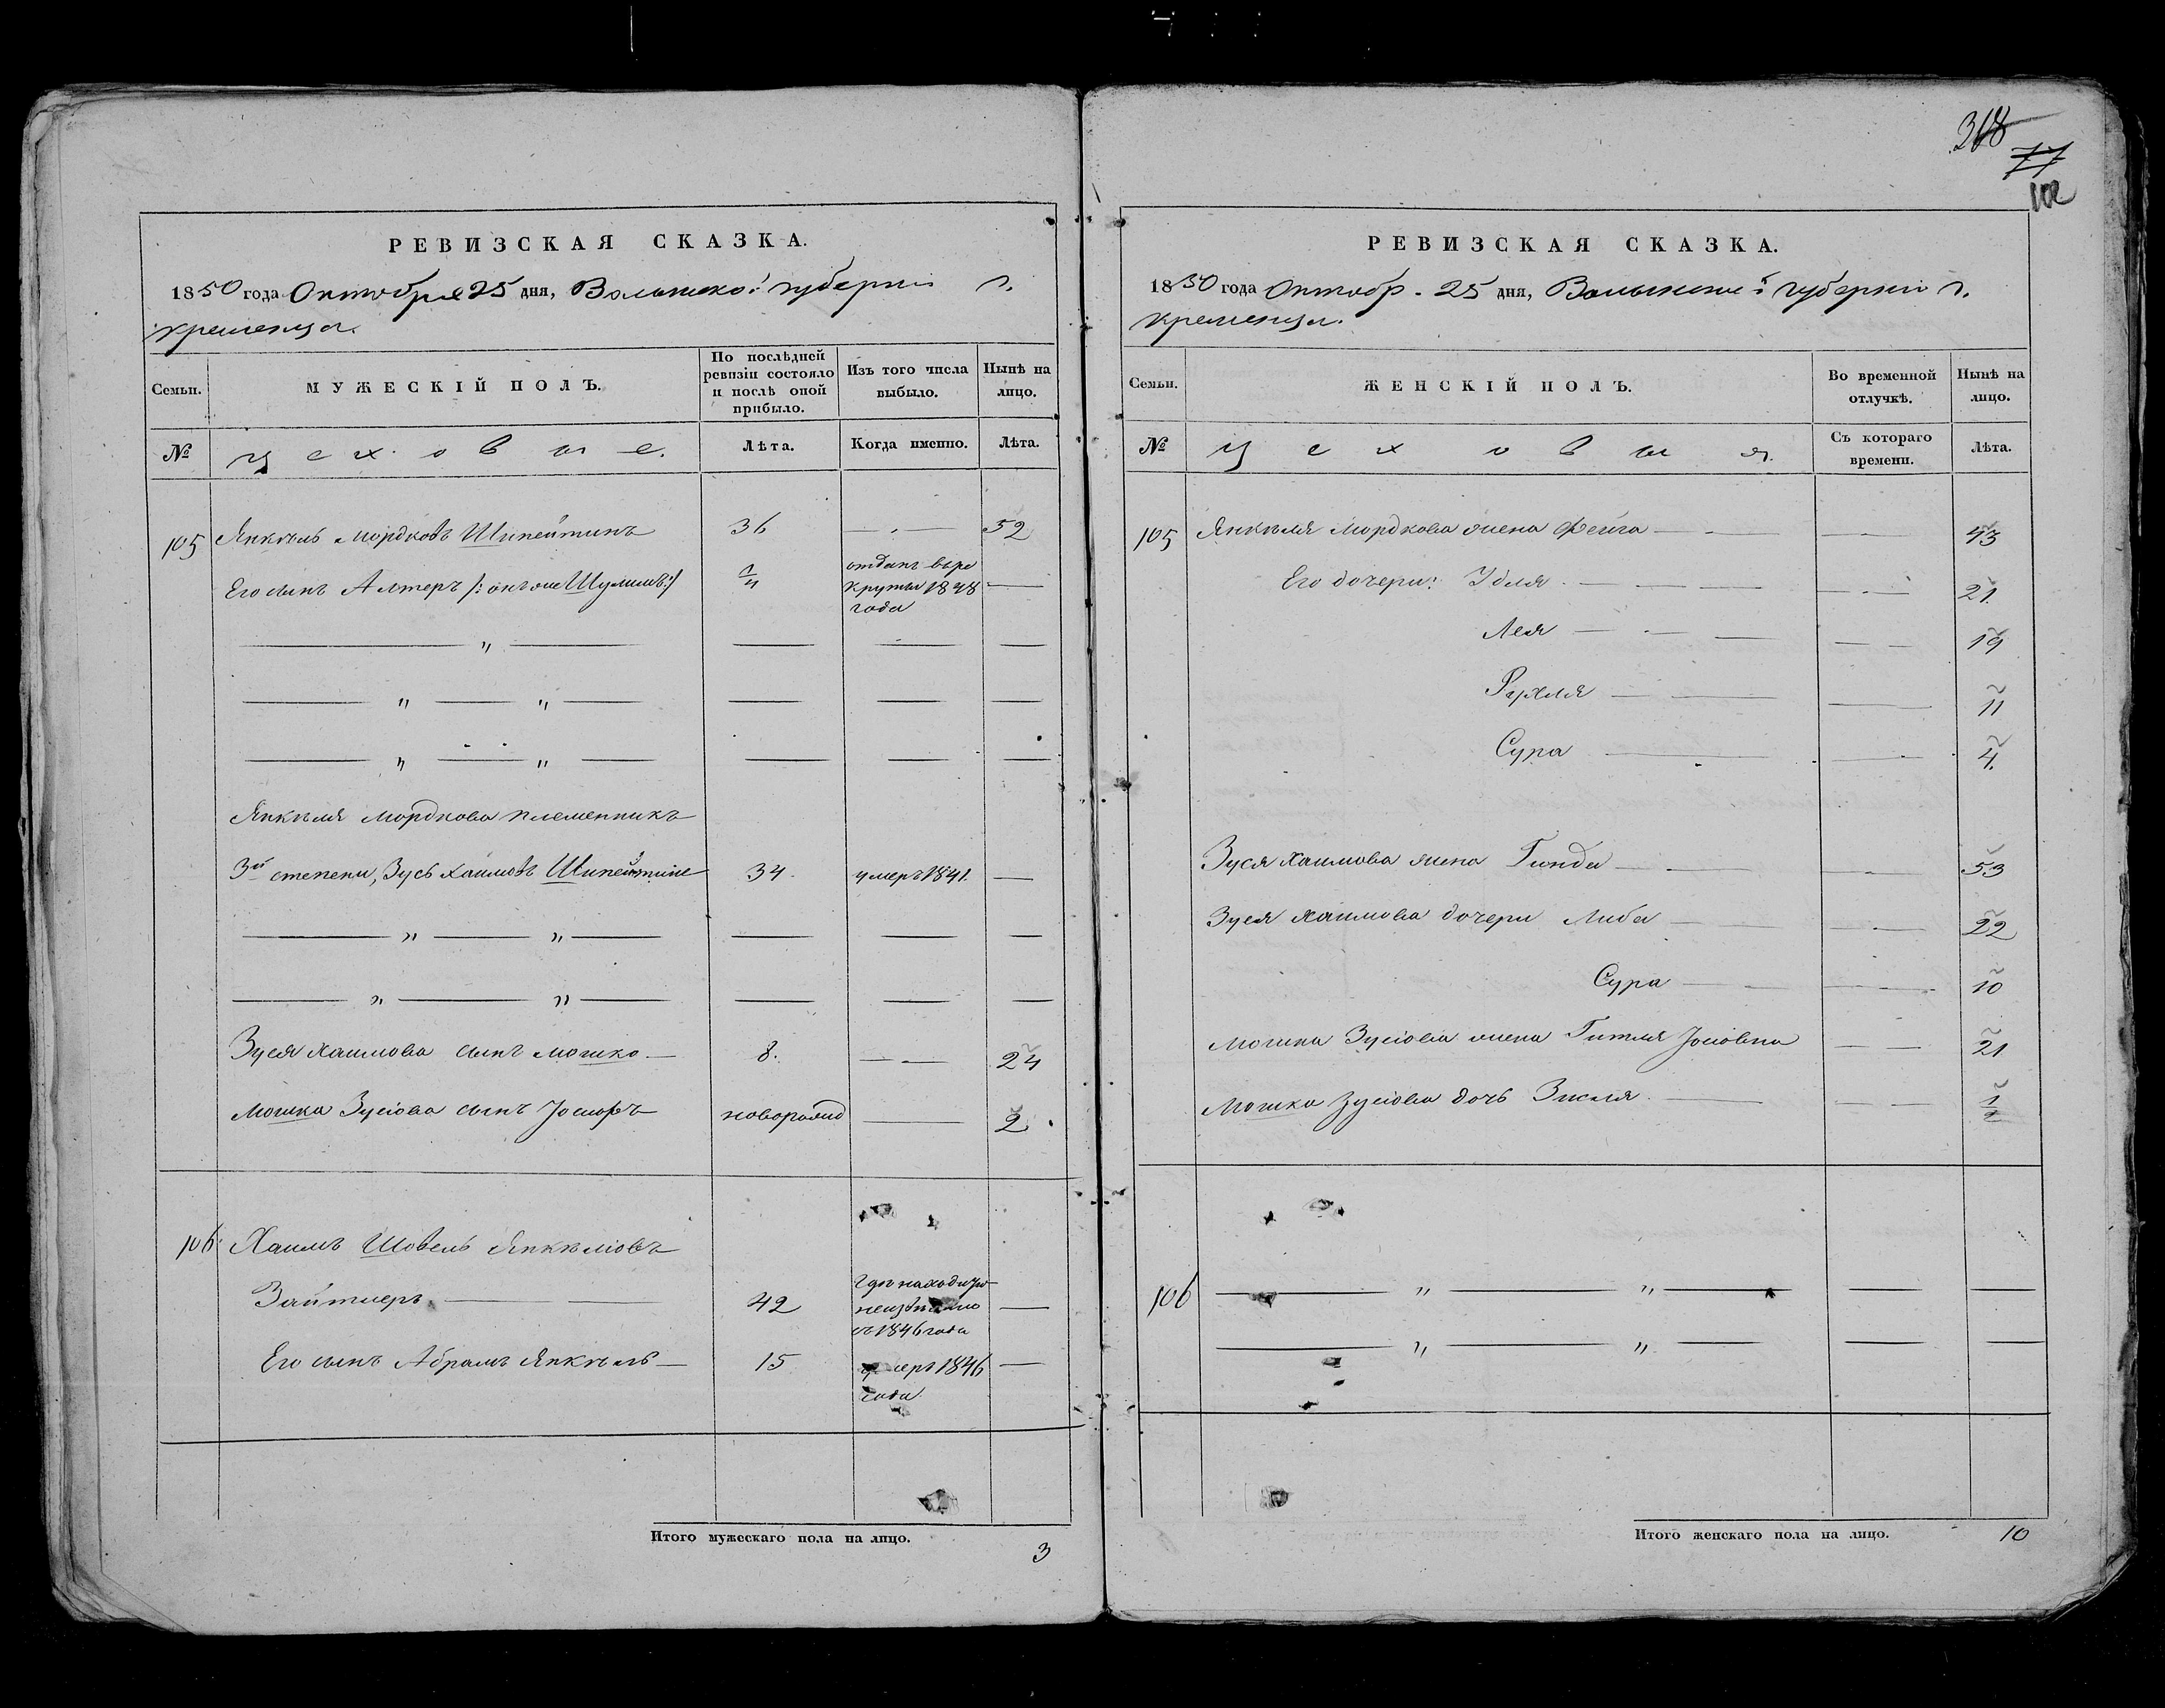 РЕВИЗСКАЯ СКАЗКА.
1850 года Октября 25 дня, Волынской губернии г.
Кременца.
Семьи.
МУЖЕСКІЙ ПОЛЪ.
По послѣдней ревизіи состояло и послѣ оной прибыло.
Изъ того числа выбыло.
Нынѣ на лицо.
№
Цеховые.
Лѣта.
Когда именно.
Лѣта.
105 Янкель Мордковъ Шпейтинъ 36 — 52
Его сынъ Алтеръ /: онъ же Шулимъ :/ 1/4 отданъ въ ре
круты 1848
года —
— „ —
— „ — „ —
— „ — „ —
Янкеля Мордкова племенникъ
3й степени, Зусь Хаимовъ 34 умеръ 1841. —
— „ — „ —
— „ — „ —
Зуся Хаимова сынъ Мошко — 8. — 24
Мошка Зусіова сынъ Іосифъ новорожд — 2
106 Хаимъ Шовель Янкеліовъ
Зайтлеръ — 42 Гдѣ находится
неизвѣстно
съ 1846 года —
Его сынъ Абрамъ Янкель — 15 умеръ 1846
года —
Итого мужескаго пола на лицо.
3
318
77
102
РЕВИЗСКАЯ СКАЗКА.
1850 года Октябр. 25 дня, Волынской губерніи г.
Кременца.
Семьи.
ЖЕНСКІЙ ПОЛЪ.
Во временной отлучкѣ.
Нынѣ на лицо.
№
Цеховыя.
Съ котораго времени.
Лѣта.
105 Янкеля Мордкова жена Фейга — 43
Его дочери: Удля — 21
Лея — 19
Рухля — 11
Сура — 4.
Зуся Хаимова жена Гинда — 53
Зуся Хаимова дочери Либа — 22
Сура — 10
Мошка Зусіова жена Гитля Іосіовна — 21
Мошка Зусіова дочь Зисля — 1/2
106 — „ — „ —
— „ — „ —
Итого женскаго пола на лицо.
10